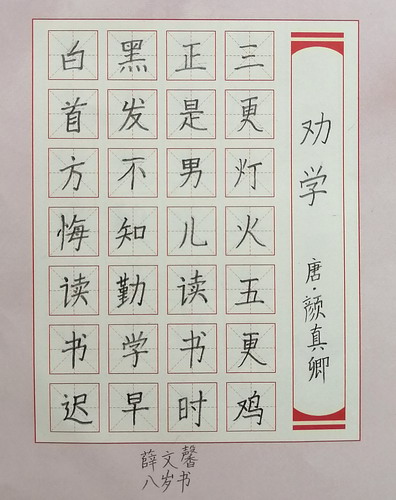 劝学
唐·颜真卿
三更灯火五更鸡
正是男儿读书时
黑发不知勤学早
白首方悔读书迟
薛文馨
八岁书